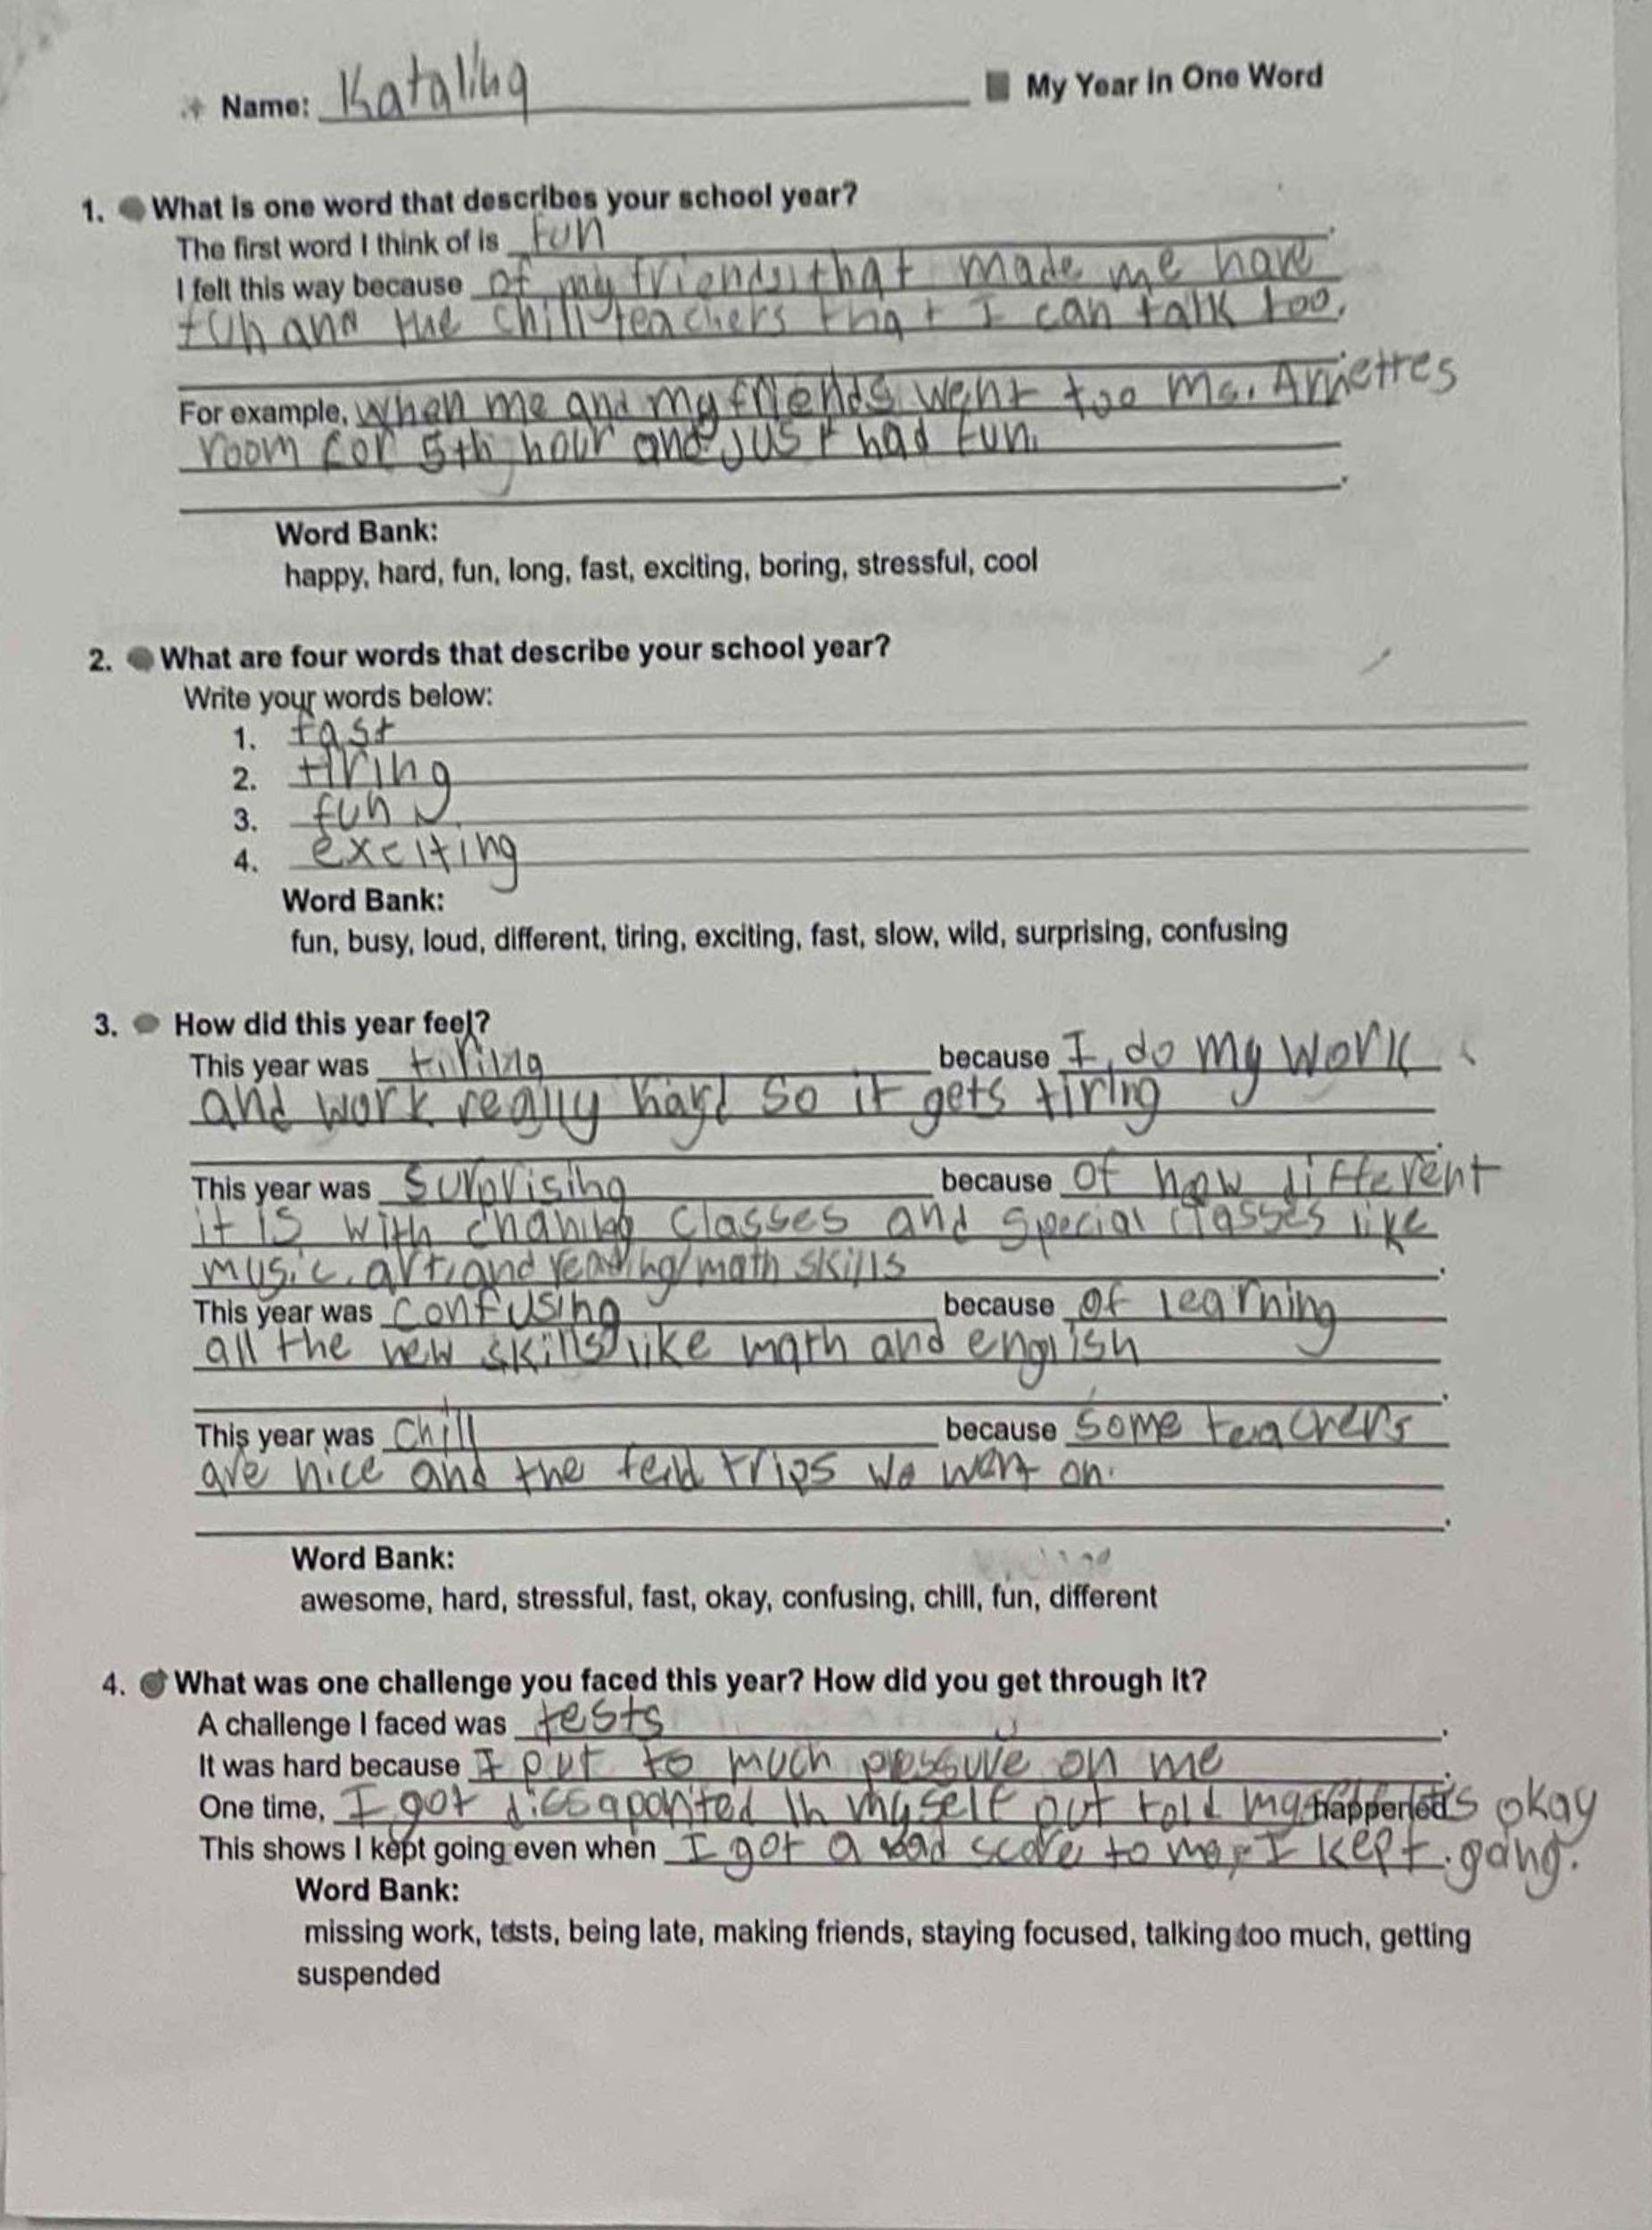 Name: Katalina My Year in One Word
1. What is one word that describes your school year?
The first word I think of is fun.
I felt this way because of my friends that made me have
fun and the chill teachers that I can talk too.
For example, when me and my friends went too Ms. Arnettes
room for 5th hour and just had fun.
Word Bank:
happy, hard, fun, long, fast, exciting, boring, stressful, cool
2. What are four words that describe your school year?
Write your words below:
1. fast
2. tiring
3. fun
4. exciting
Word Bank:
fun, busy, loud, different, tiring, exciting, fast, slow, wild, surprising, confusing
3. How did this year feel?
This year was tiring because I do my work
and work really hard so it gets tiring
This year was surprising because of how different
it is with classes and special classes like
music, art, and reading/math skills.
This year was confusing because of learning
all the new skills like math and english
This year was chill because some teachers
are nice and the feild trips we went on.
Word Bank:
awesome, hard, stressful, fast, okay, confusing, chill, fun, different
4. What was one challenge you faced this year? How did you get through it?
A challenge I faced was tests.
It was hard because I put to much pressure on me.
One time, I got dissaponted in myself but told happened okay
This shows I kept going even when I got a bad score to me, I kept going.
Word Bank:
missing work, tests, being late, making friends, staying focused, talking too much, getting
suspended